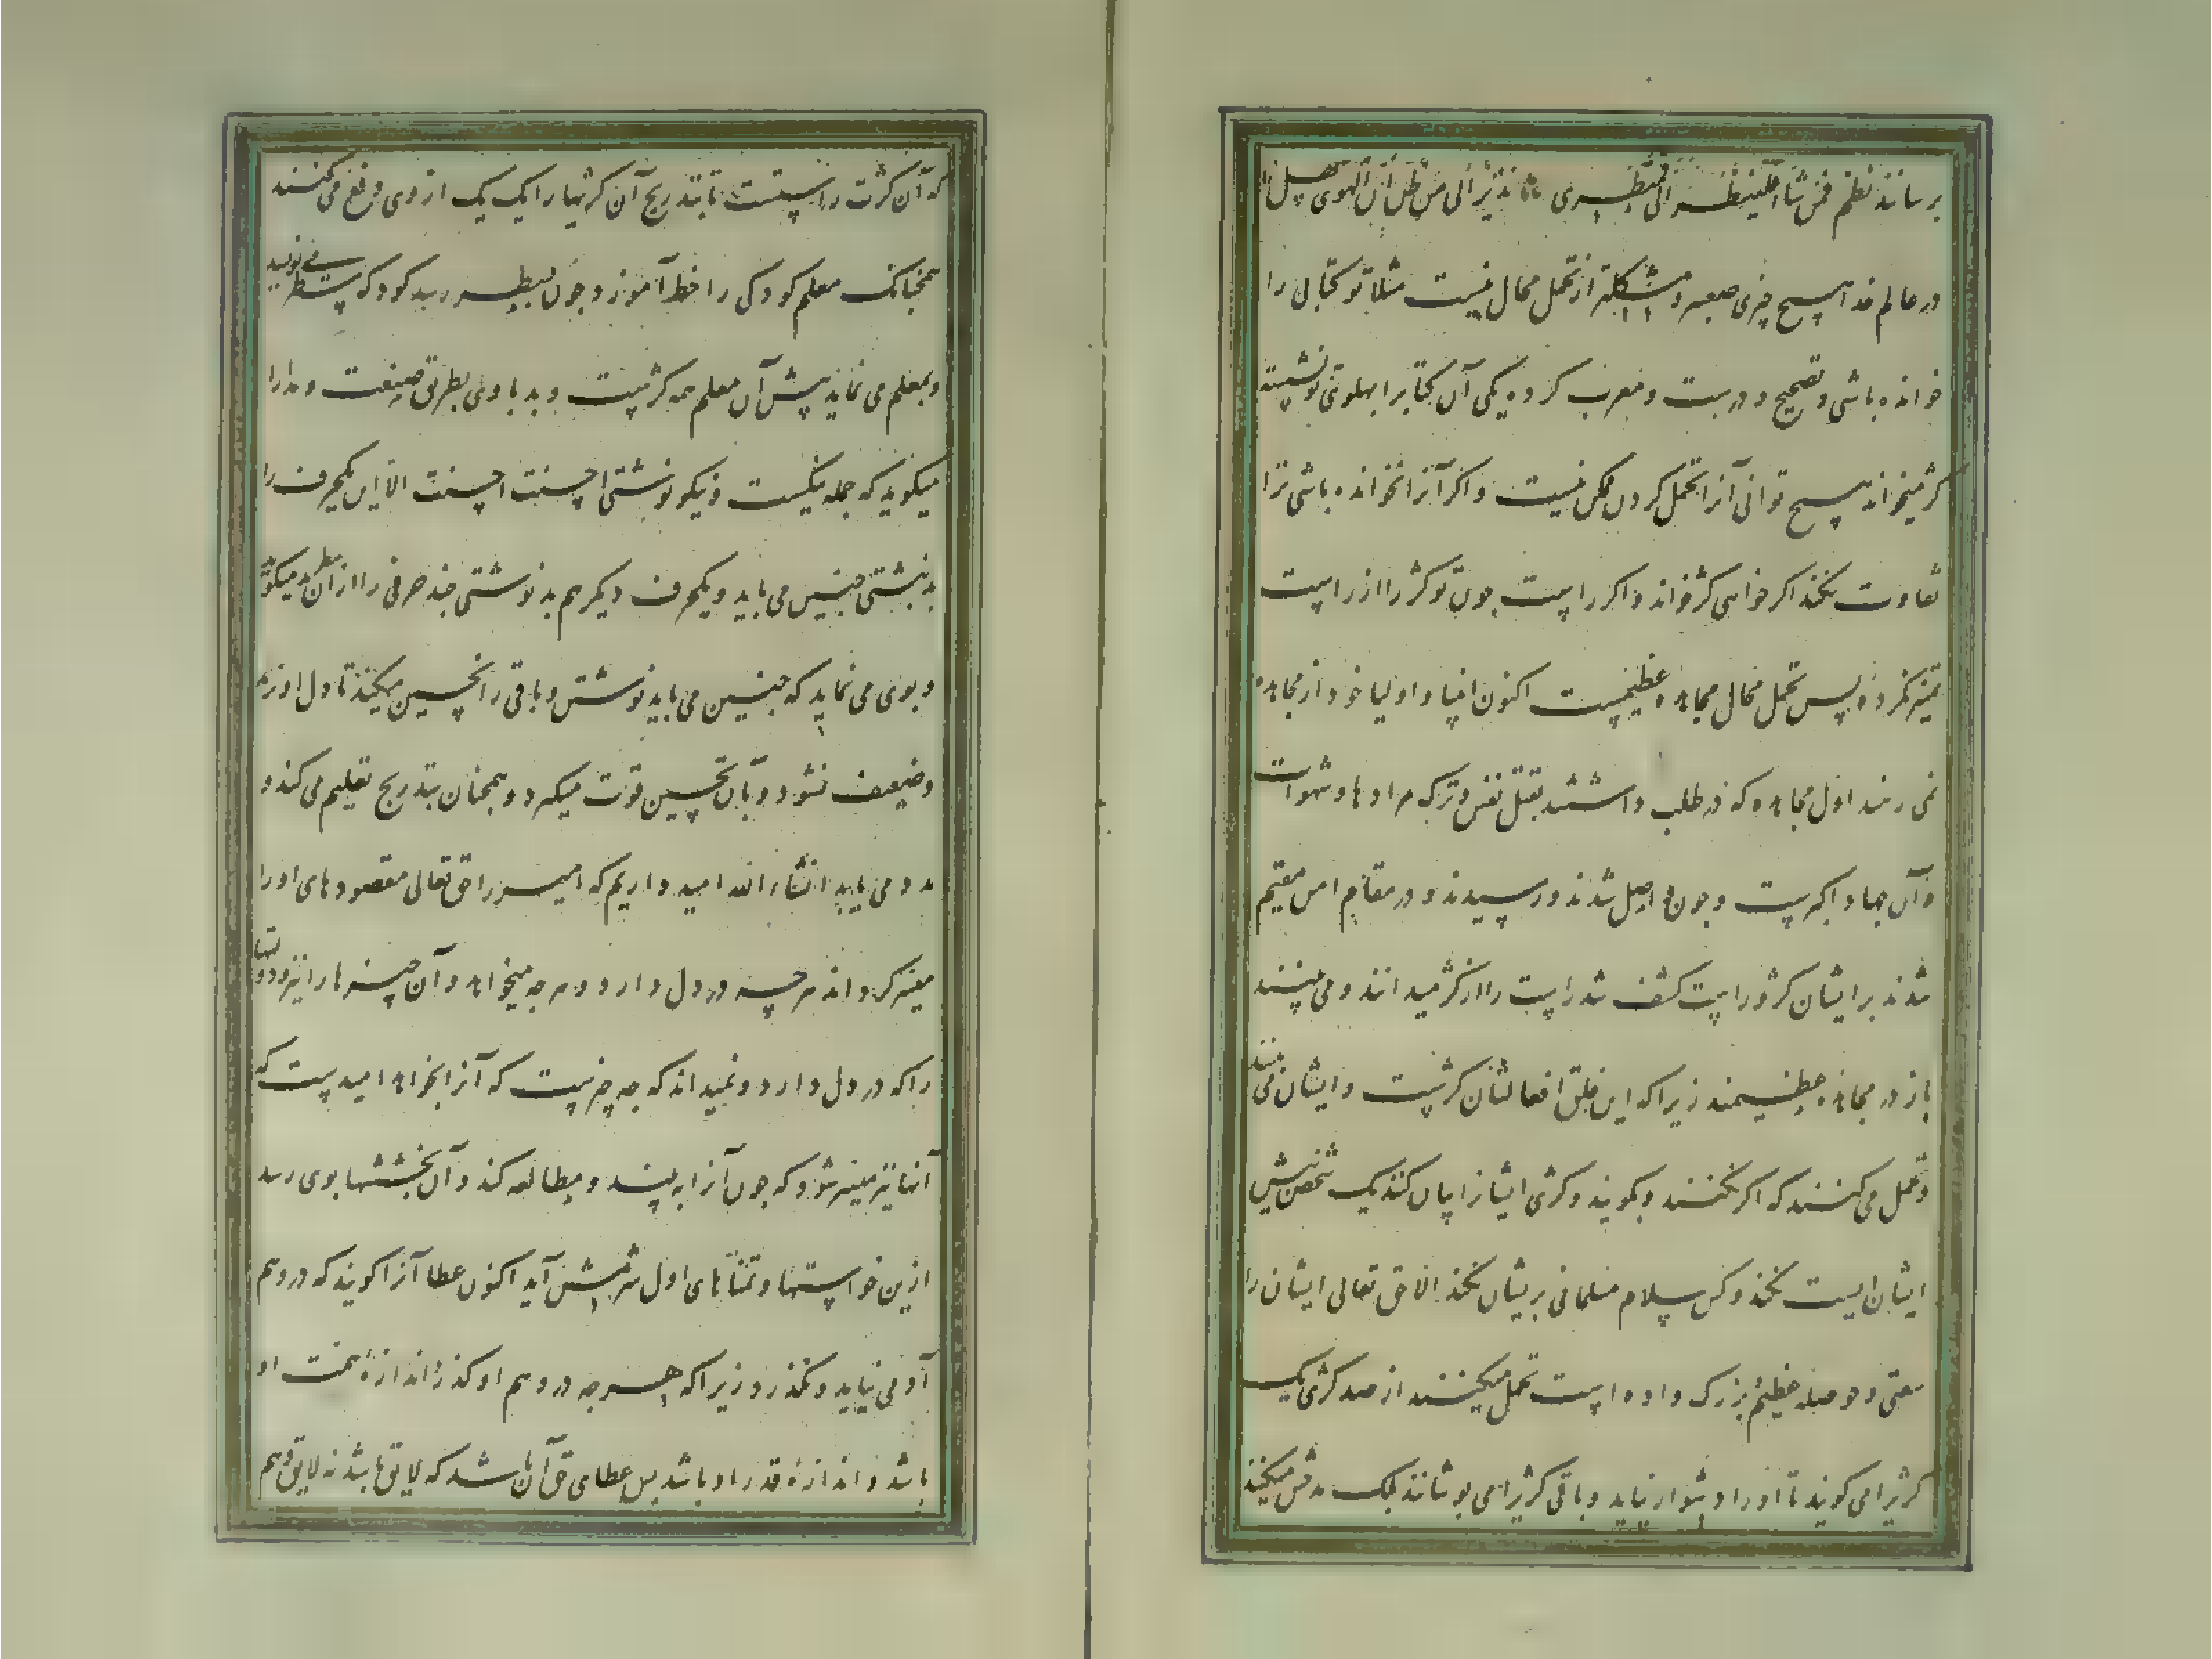 برسانند نظم فمن شاء فلینظر الی فمنظری نذیر الی من ظن ان الهوی سهل
در عالم خدا هیچ چیزی صعبتر و مشکلتر از تحمل محال نیست مثلا تو کتابی را
خوانده باشی و تصحیح و درست و معرب کرده یکی آن کتابرا پهلوی تو نشسته
کژ میخواند هیچ توانی آنرا تحمل کردن ممکن نیست و اکر آنرا نخوانده باشی ترا
تفاوت نکند اکر خواهی کژ خواند و اکر راست چون تو کژ را از راست
تمیز نکرده پس تحمل محال مجاهده عظیمست اکنون انبیا و اولیا خود را از مجاهده
نمی رهند اول مجاهده که در طلب داشتند بقتل نفس و ترک مرادها و شهوات
و آن جهاد اکبرست و چون واصل شدند و رسیدند و در مقام امن مقیم
شدند بر ایشان کژ و راست کشف شد راست را از کژ میدانند و می بینند
باز در مجاهده عظیمند زیرا که این خلق را افعالشان کژست و ایشان می بینند
و تحمل می کنند که اکر نکنند و بکویند و کژی ایشانرا بیان کنند یک شخص پیش
ایشان ایست نکند و کس سلام مسلمانی بریشان نکند الا حق تعالی ایشان را
سعتی و حوصله عظیم بزرک داده است تحمل میکنند از صد کژی یک
کژی را می کویند تا او را دشوار نیاید و باقی کژی را می پوشانند بلک مدحش میکنند
که آن کژت راستست تا بتدریج آن کژیها را یک یک از وی دفع می کنند
همچنانک معلم کودکی را خط آموزد چون بسطر رسد کودک سطر می نویسد
و بمعلم می نماید پیش آن معلم همه کژست و بد با وی بطریق صنعت و مدارا
میکوید که جمله نیکست و نیکو نوشتی احسنت احسنت الا این یکحرف را
بد نبشتی چنین می باید و یکحرف دیکر هم بد نوشتی چند حرفی را از آن سطر بد میکوید
و بوی می نماید که چنین می باید نوشتن و باقی را تحسین میکند تا دل او نرمد
و ضعیف نشود و بآن تحسین قوت میکیرد و همچنان بتدریج تعلیم می کند و
مدد می یابد انشاء الله امید داریم که امیر را حق تعالی مقصودهای او را
میسر کرداند هرچه در دل دارد و هرچه میخواهد و آن چیزها را نیز و دولتها
را که در دل دارد و نمیداند که چه چیزست که آنرا بخواهد امیدست که
آنها نیز میسر شود که چون آنرا ببیند و مطالعه کند و آن بخششها بوی رسد
ازین خواستها و تمناهای اول شرمش آید اکنون عطا آنرا کویند که در وهم
آدمی نیاید و نکذرد زیرا که هرچه در وهم او کذرد اندازه همت او
باشد و اندازه قدر او باشد پس عطای حق آن باشد که لایق ما باشد نه لایق وهم